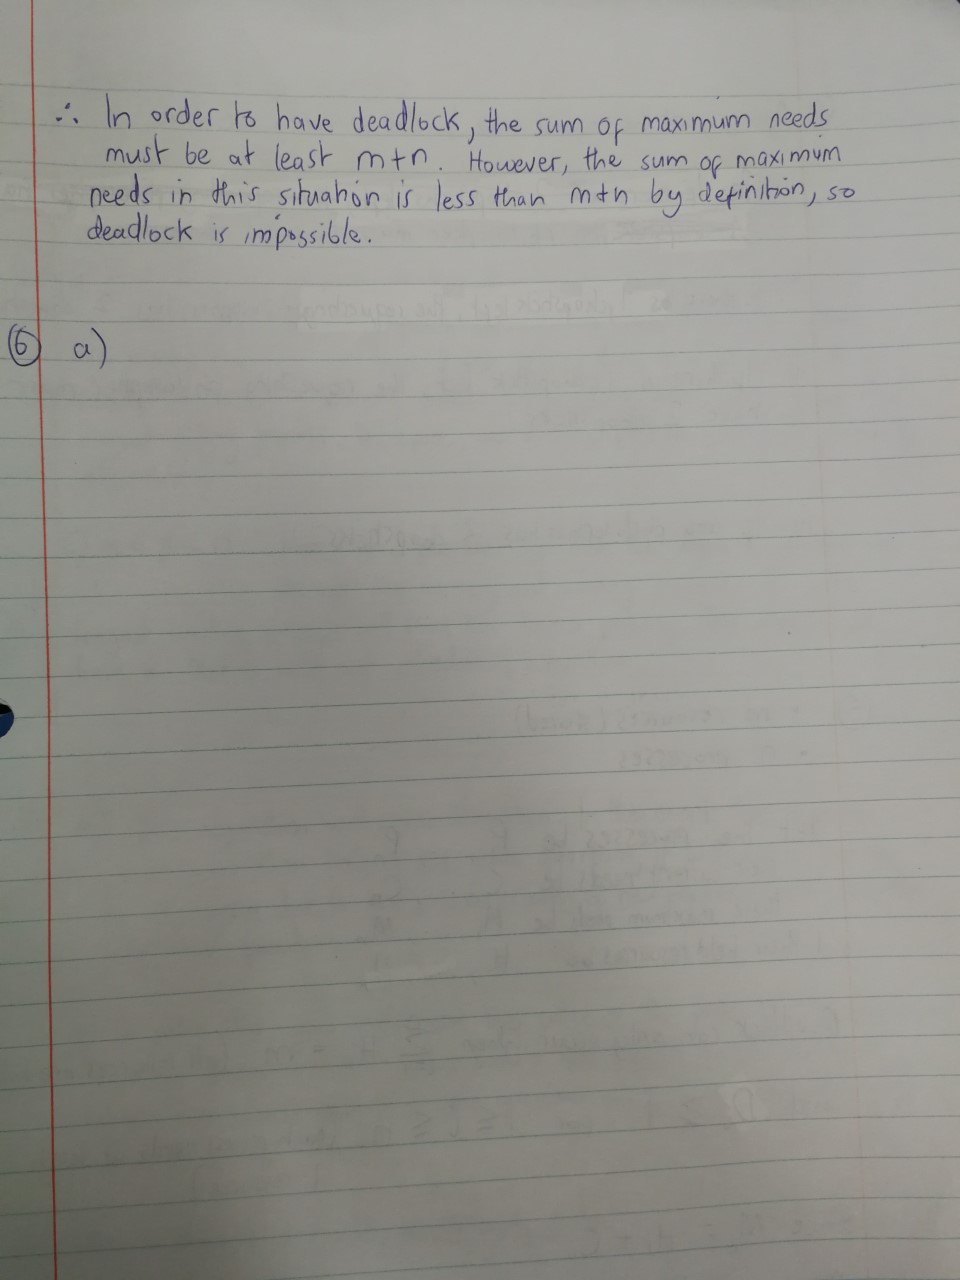 ∴ In order to have deadlock, the sum of maximum needs
must be at least m+n. However, the sum of maximum
needs in this situation is less than m+n by definition, so
deadlock is impossible.
⑥ a)